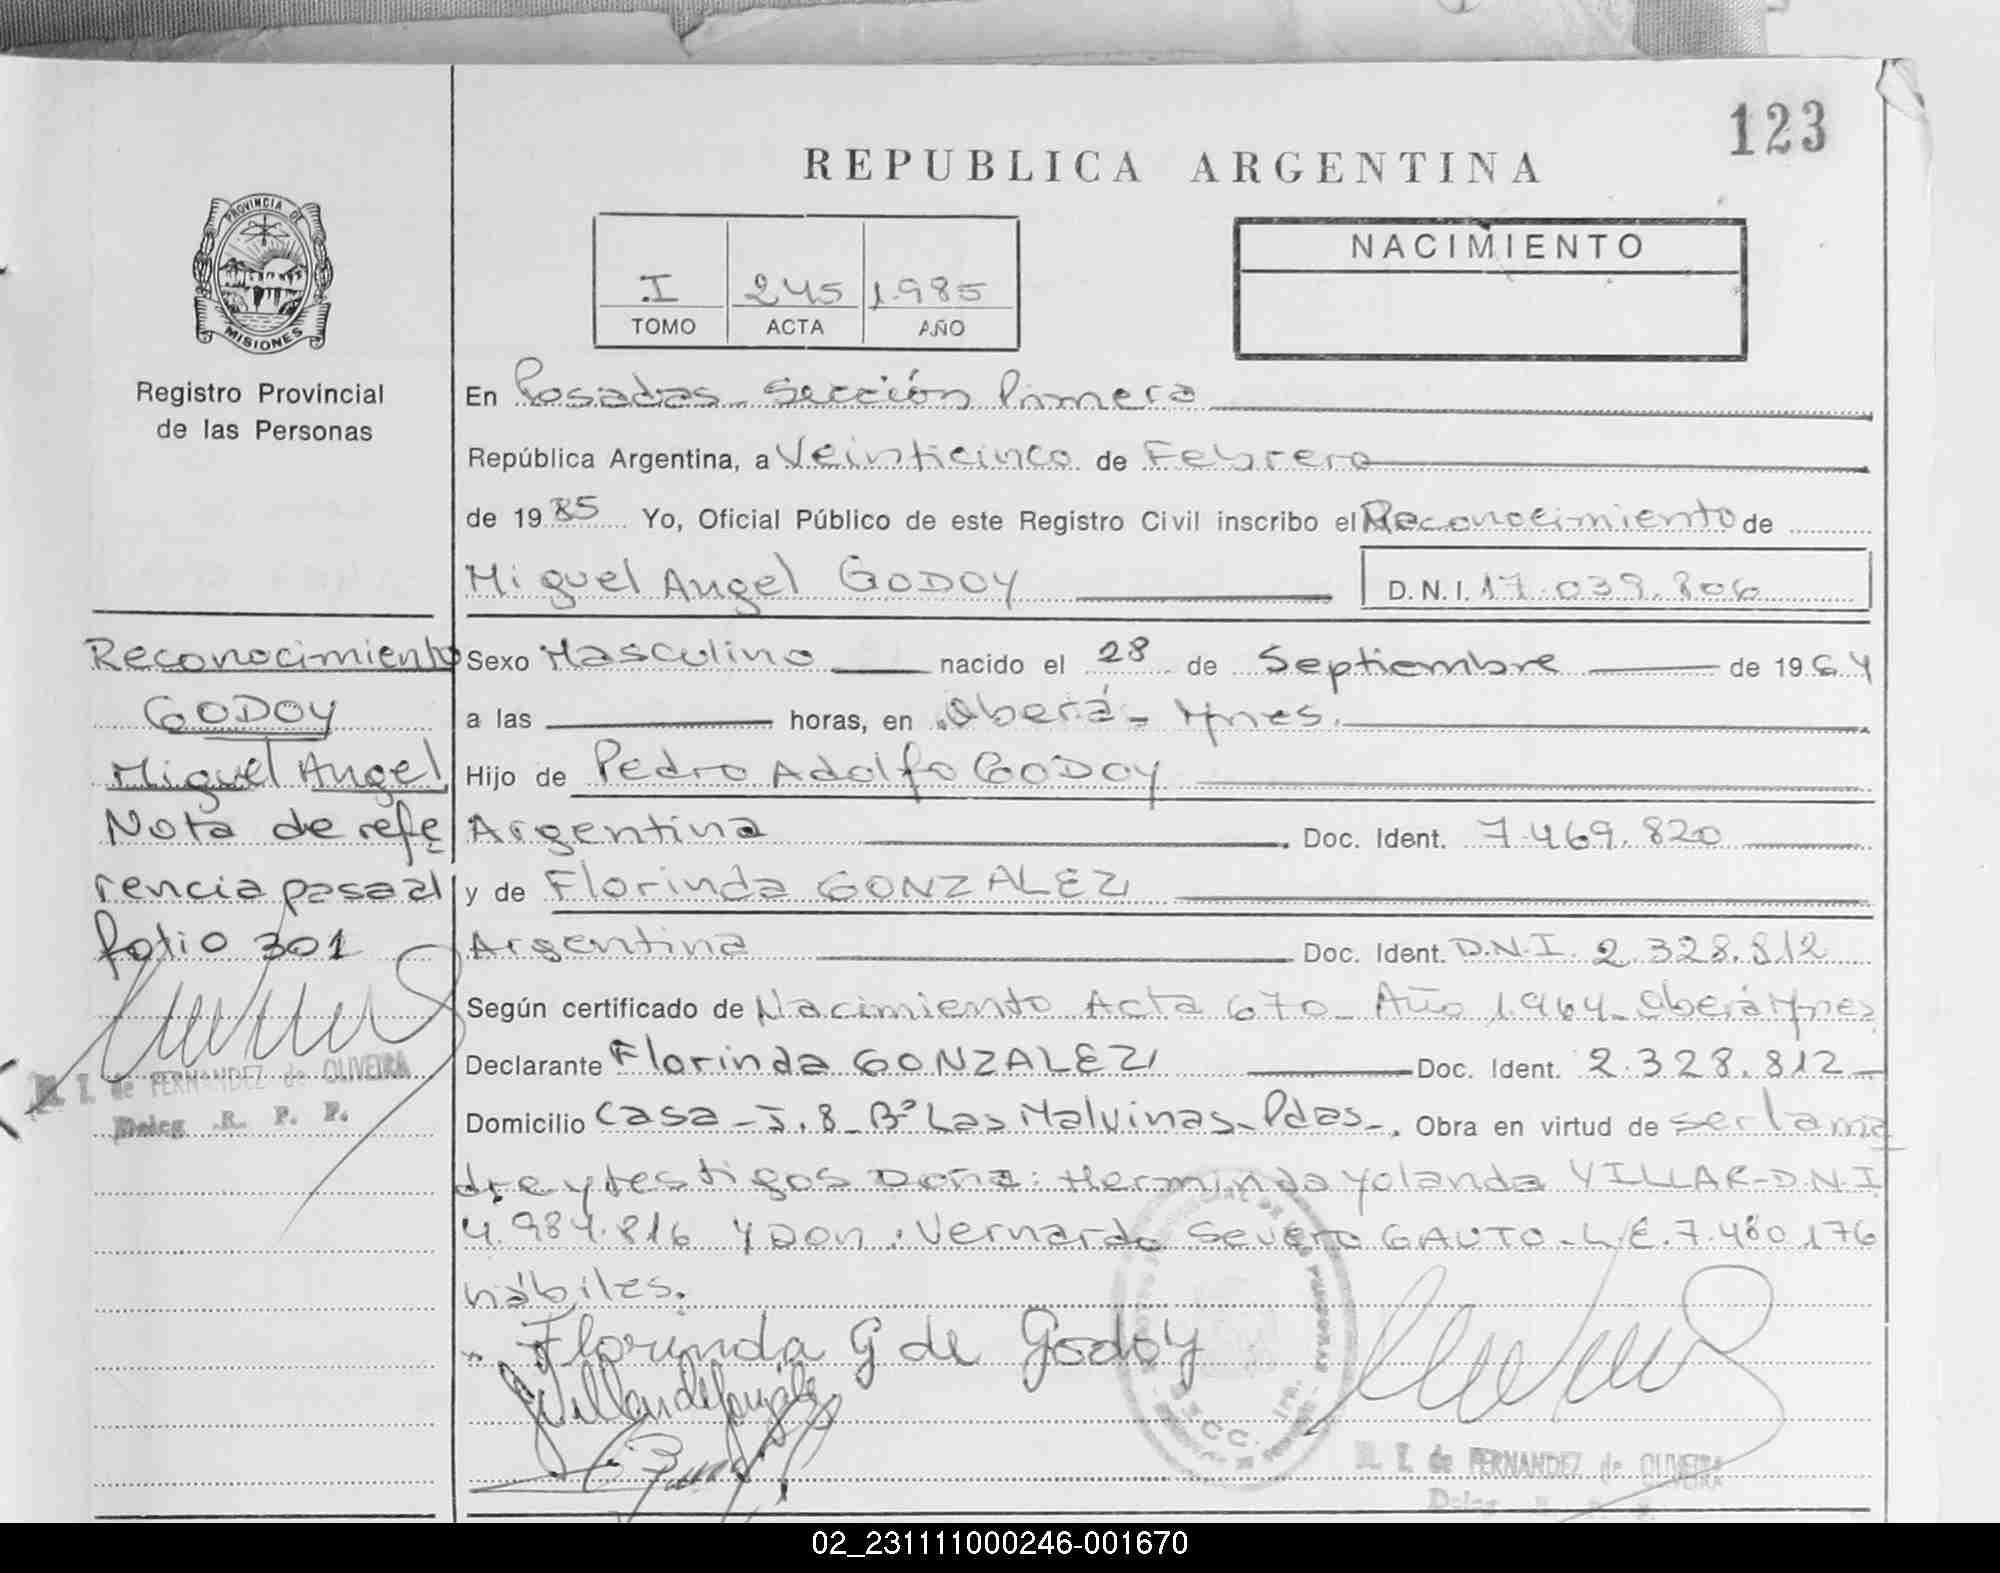 123
REPUBLICA ARGENTINA
PROVINCIA DE
MISIONES
Registro Provincial
de las Personas
I 245 1.985
TOMO ACTA AÑO
NACIMIENTO
En Posadas - Sección Primera
República Argentina, a Veinticinco de Febrero
de 19 85 Yo, Oficial Público de este Registro Civil inscribo el Reconocimiento de
Miguel Angel GODOY D.N.I. 17.039.806
Reconocimiento
GODOY
Miguel Angel
Nota de refe
rencia pasa al
folio 301
M. I. de FERNANDEZ de OLIVEIRA
Deleg R. P. P.
Sexo Masculino nacido el 28 de Septiembre de 1964
a las horas, en Oberá - Mnes.
Hijo de Pedro Adolfo GODOY
Argentina Doc. Ident. 7.469.820
y de Florinda GONZALEZ
Argentina Doc. Ident. D.N.I. 2.328.812
Según certificado de Nacimiento Acta 670 - Año 1.964 - Oberá Mnes
Declarante Florinda GONZALEZ Doc. Ident. 2.328.812
Domicilio Casa - J. 8 - Bº Las Malvinas - Pdas -. Obra en virtud de ser la ma
dre y testigos Doña: Herminda Yolanda VILLAR - D.N.I
4.984.816 y Don: Vernardo Severo GAUTO - L.E. 7.480.176
hábiles.
Florinda G de Godoy
M. I. de FERNANDEZ de OLIVEIRA
Deleg
02_231111000246-001670